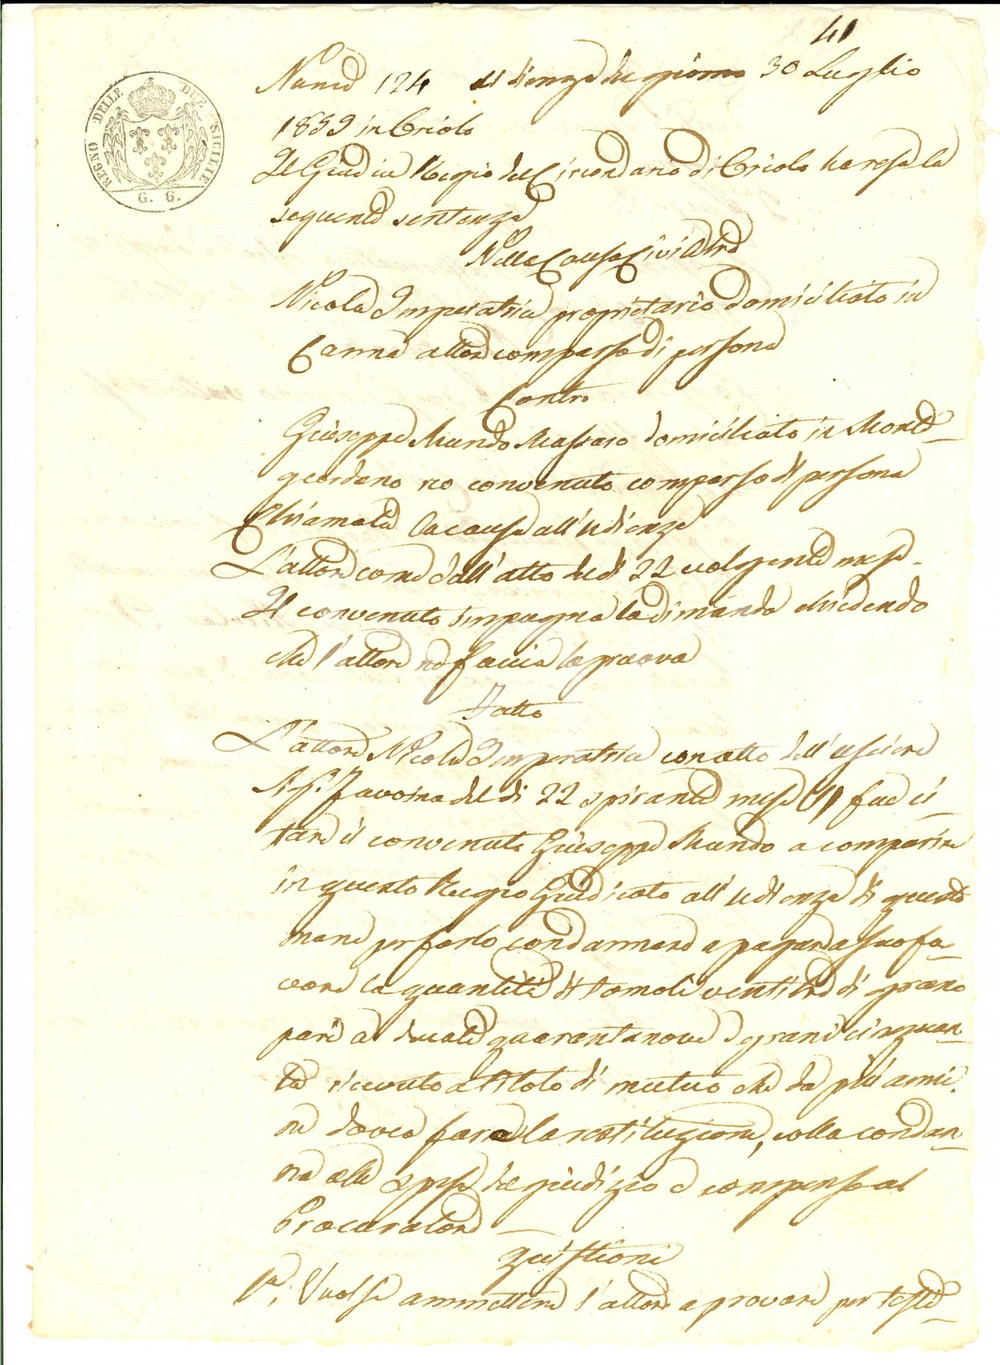 41
REGNO DELLE DUE SICILIE
G. G.
Num.o 124 udienza del giorno 30 Luglio
1839 in Oriolo
Il Giudice Regio del Circondario di Oriolo ha resa la
seguente sentenza
Nella Causa Civile tra
Nicola Imperatrice proprietario domiciliato in
Canna attore comparso di persona
Contro
Giuseppe Mundo Massaro domiciliato in Monte
giordano reo convenuto comparso di persona
Chiamata la causa all'udienza
L'attore come dall'atto de dì 22 volgente mese.
Il convenuto impugna la dimanda chiedendo
che l'attore ne faccia la pruova
Fatto
L'attore Nicola Imperatrice con atto dell'usciere
Favoina del dì 22 spirante mese fece ci-
tare il convenuto Giuseppe Mundo a comparire
in questo Regio Giudicato all'udienza di questa
mane per farlo condannare a pagare a suo fa-
vore la quantità di tomola ventitre di grano
pari a ducati quarantanove e grani cinquan-
ta ricevuto a titolo di mutuo che da più anni
ne dovea fare la restituzione, colla condan-
na alle spese del giudizio e compenso al
Procuratore
Quistioni
1a. Vuolsi ammettere l'attore a provare per teste-